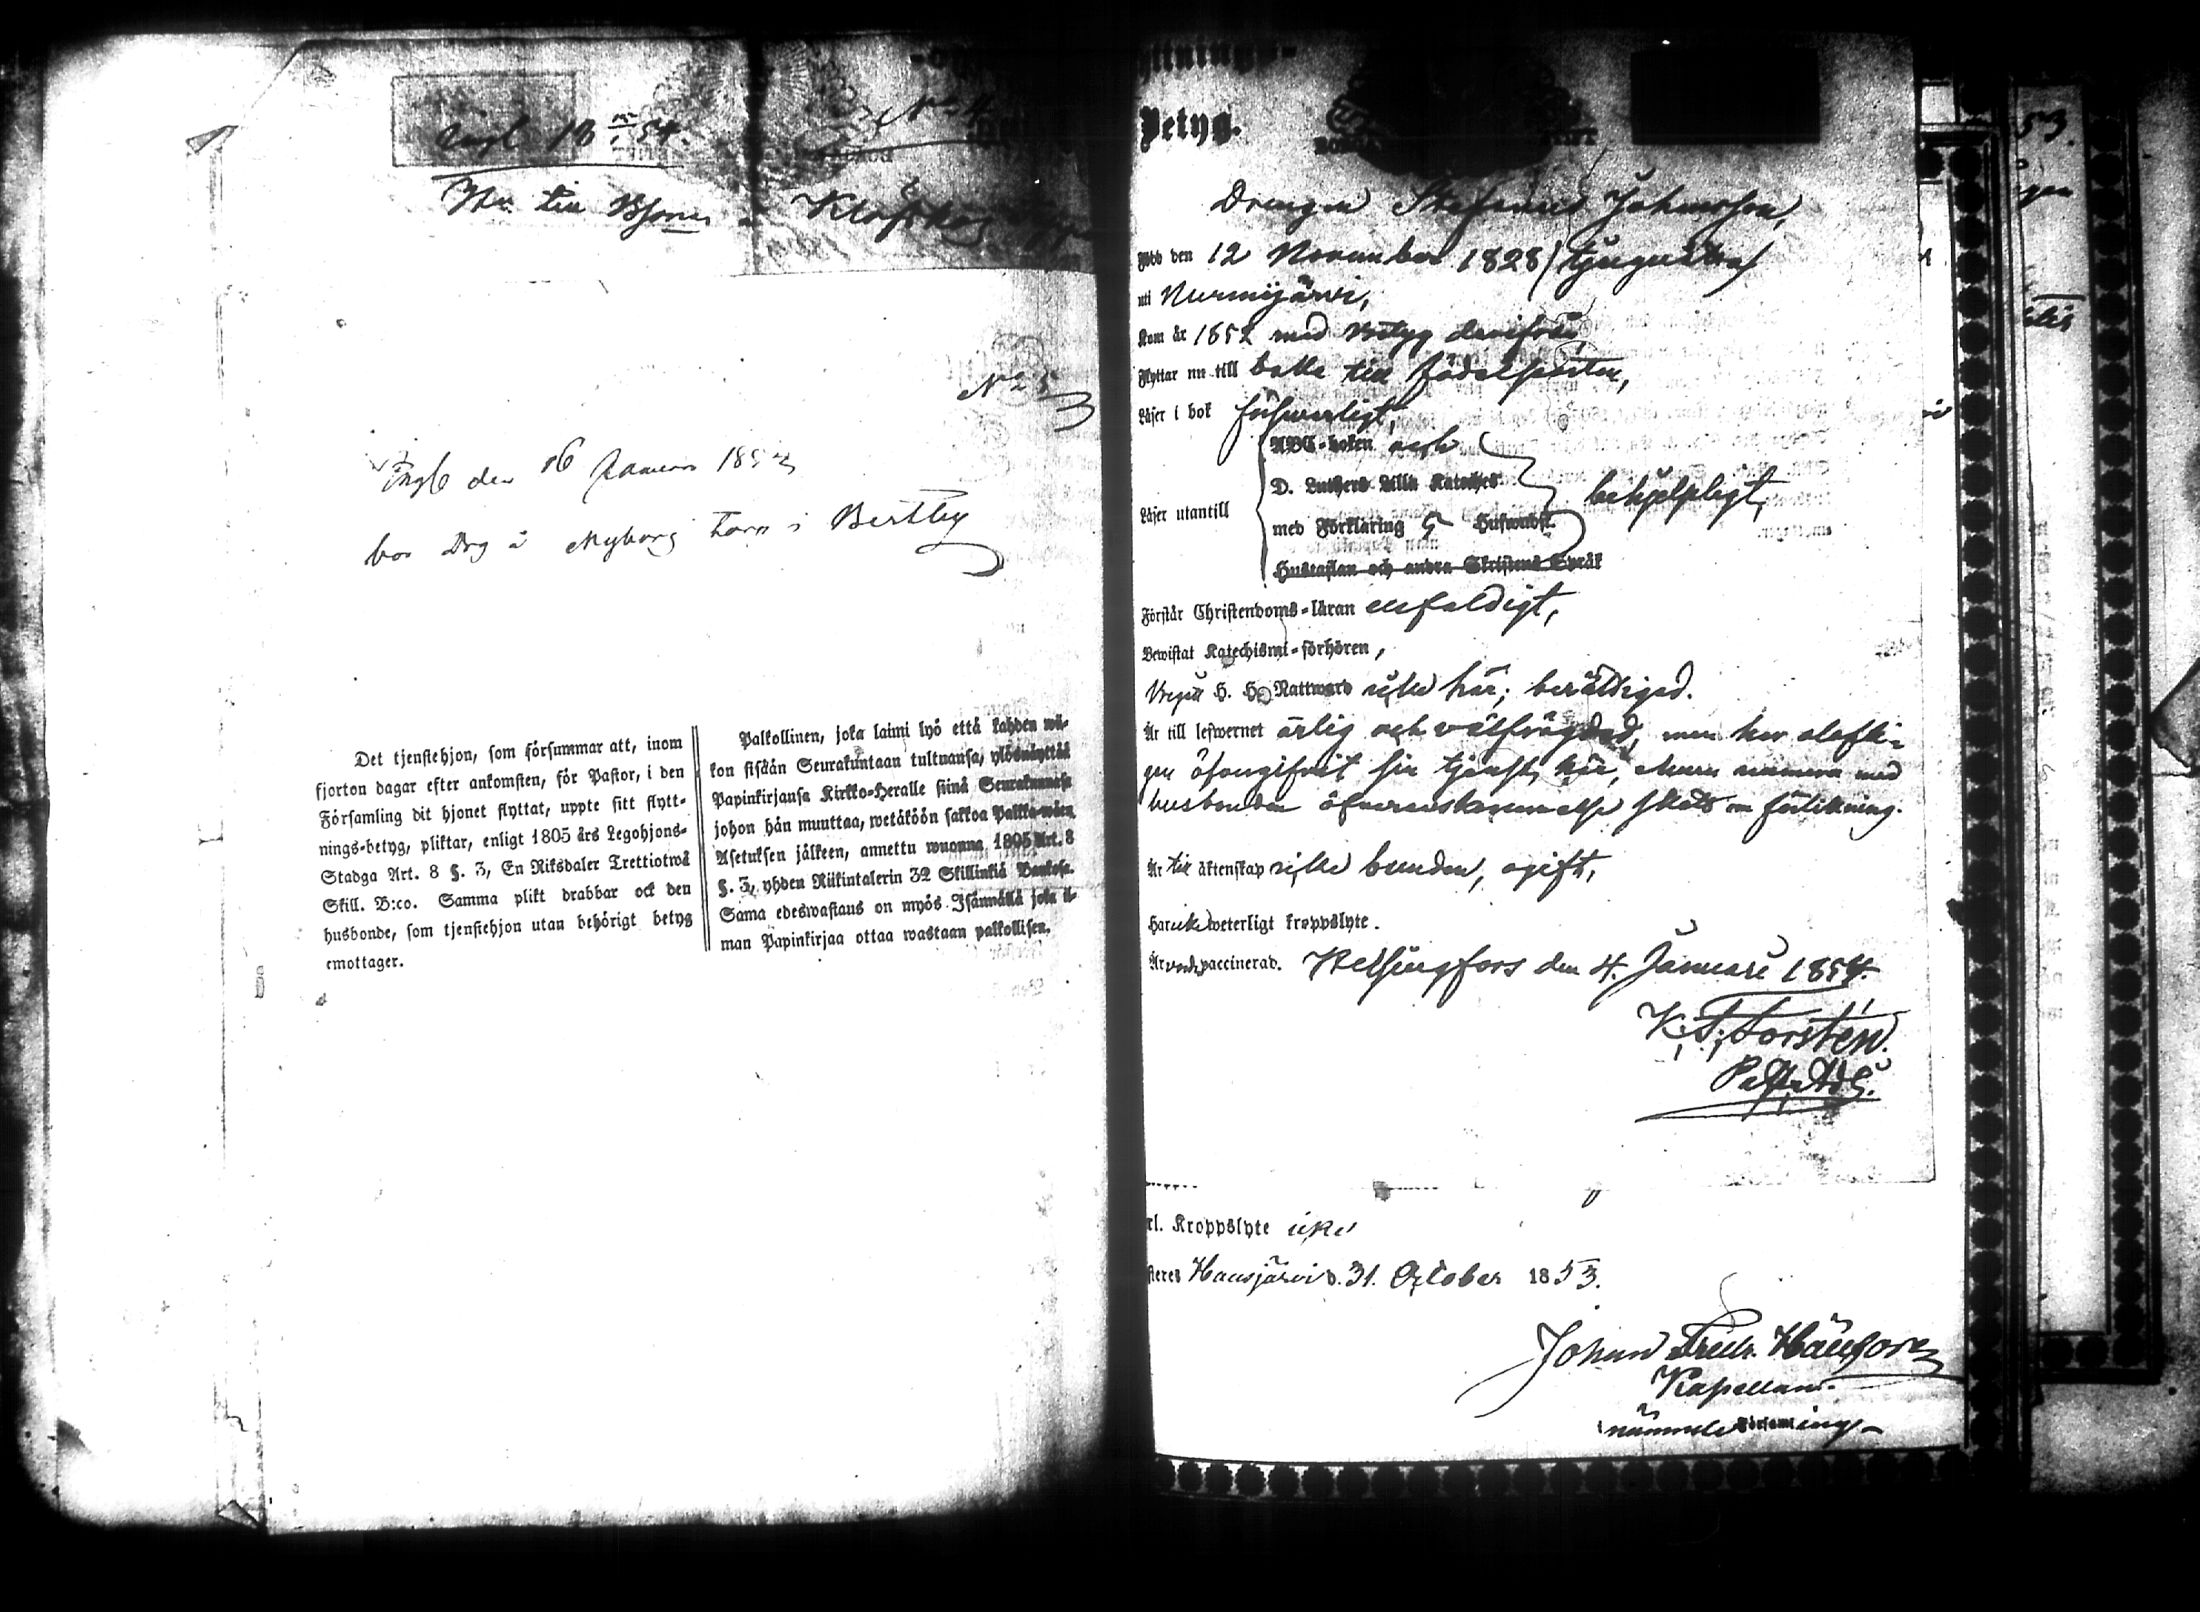 No 4
ingl 13 1/54.
No 5
Ingl den 16 Januari 1854
hos Drg å Nyborg Torp i Bertby
Det tjenstehjon, som försummar att, inom
fjorton dagar efter ankomsten, för Pastor, i den
Församling dit hjonet flyttat, uppte sitt flytt-
nings-betyg, pliktar, enligt 1805 års Legohjons-
Stadga Art. 8 §. 3, En Riksdaler Trettiotwå
Skill. B:co. Samma plikt drabbar ock den
husbonde, som tjenstehjon utan behörigt betyg
emottager.
Palkollinen, joka laimi lyö että kahden wii-
kon sisään Seurakuntaan tultuansa, ylösnäyttää
Papinkirjansa Kirkko-Heralle siinä Seurakunnasa
johon hän muuttaa, wetäköön sakkoa Palkka-wäen
Asetuksen jälkeen, annettu wuonna 1805 Art. 8
§. 3, yhden Riikintalerin 32 Skillinkiä Bankosa.
Sama edeswastaus on myös Isännällä joka il-
man Papinkirjaa ottaa wastaan palkollisen.
Betyg.
Drengen Stefanus Johansson,
Född den 12 November 1828 (tjuguåtta)
uti Nurmijärvi,
Kom år 1852 med betyg derifrån,
Flyttar nu till baka till födelseorten,
Läser i bok försvarligt,
ABC-boken och
D. Luthers Lilla Kateches
Läser utantill
med Förklaring Hufwudst.
behjelpligt,
Hustaflan och andra Skriftens Språk
Förstår Christendoms-läran enfaldigt,
Bewistat Katechismi-förhören,
Begått H. H. Nattward icke här; berättigad.
Är till lefwernet ärlig och välfrägdad, men har olofli-
gen öfvergifvit sin tjenst här, men numera med
husbonden öfverenskommelse skett om förlikning.
Är till äktenskap icke bunden, ogift,
Har icke weterligt kroppslyte.
Är vaccinerad. Helsingfors den 4. Januari 1854.
K. T. Forstén.
Past. Adj.
rl. Kroppslyte icke
steres Hausjärvi d. 31. October 1853.
Johan Fredr.
Kapellan.
i nämnde Församling